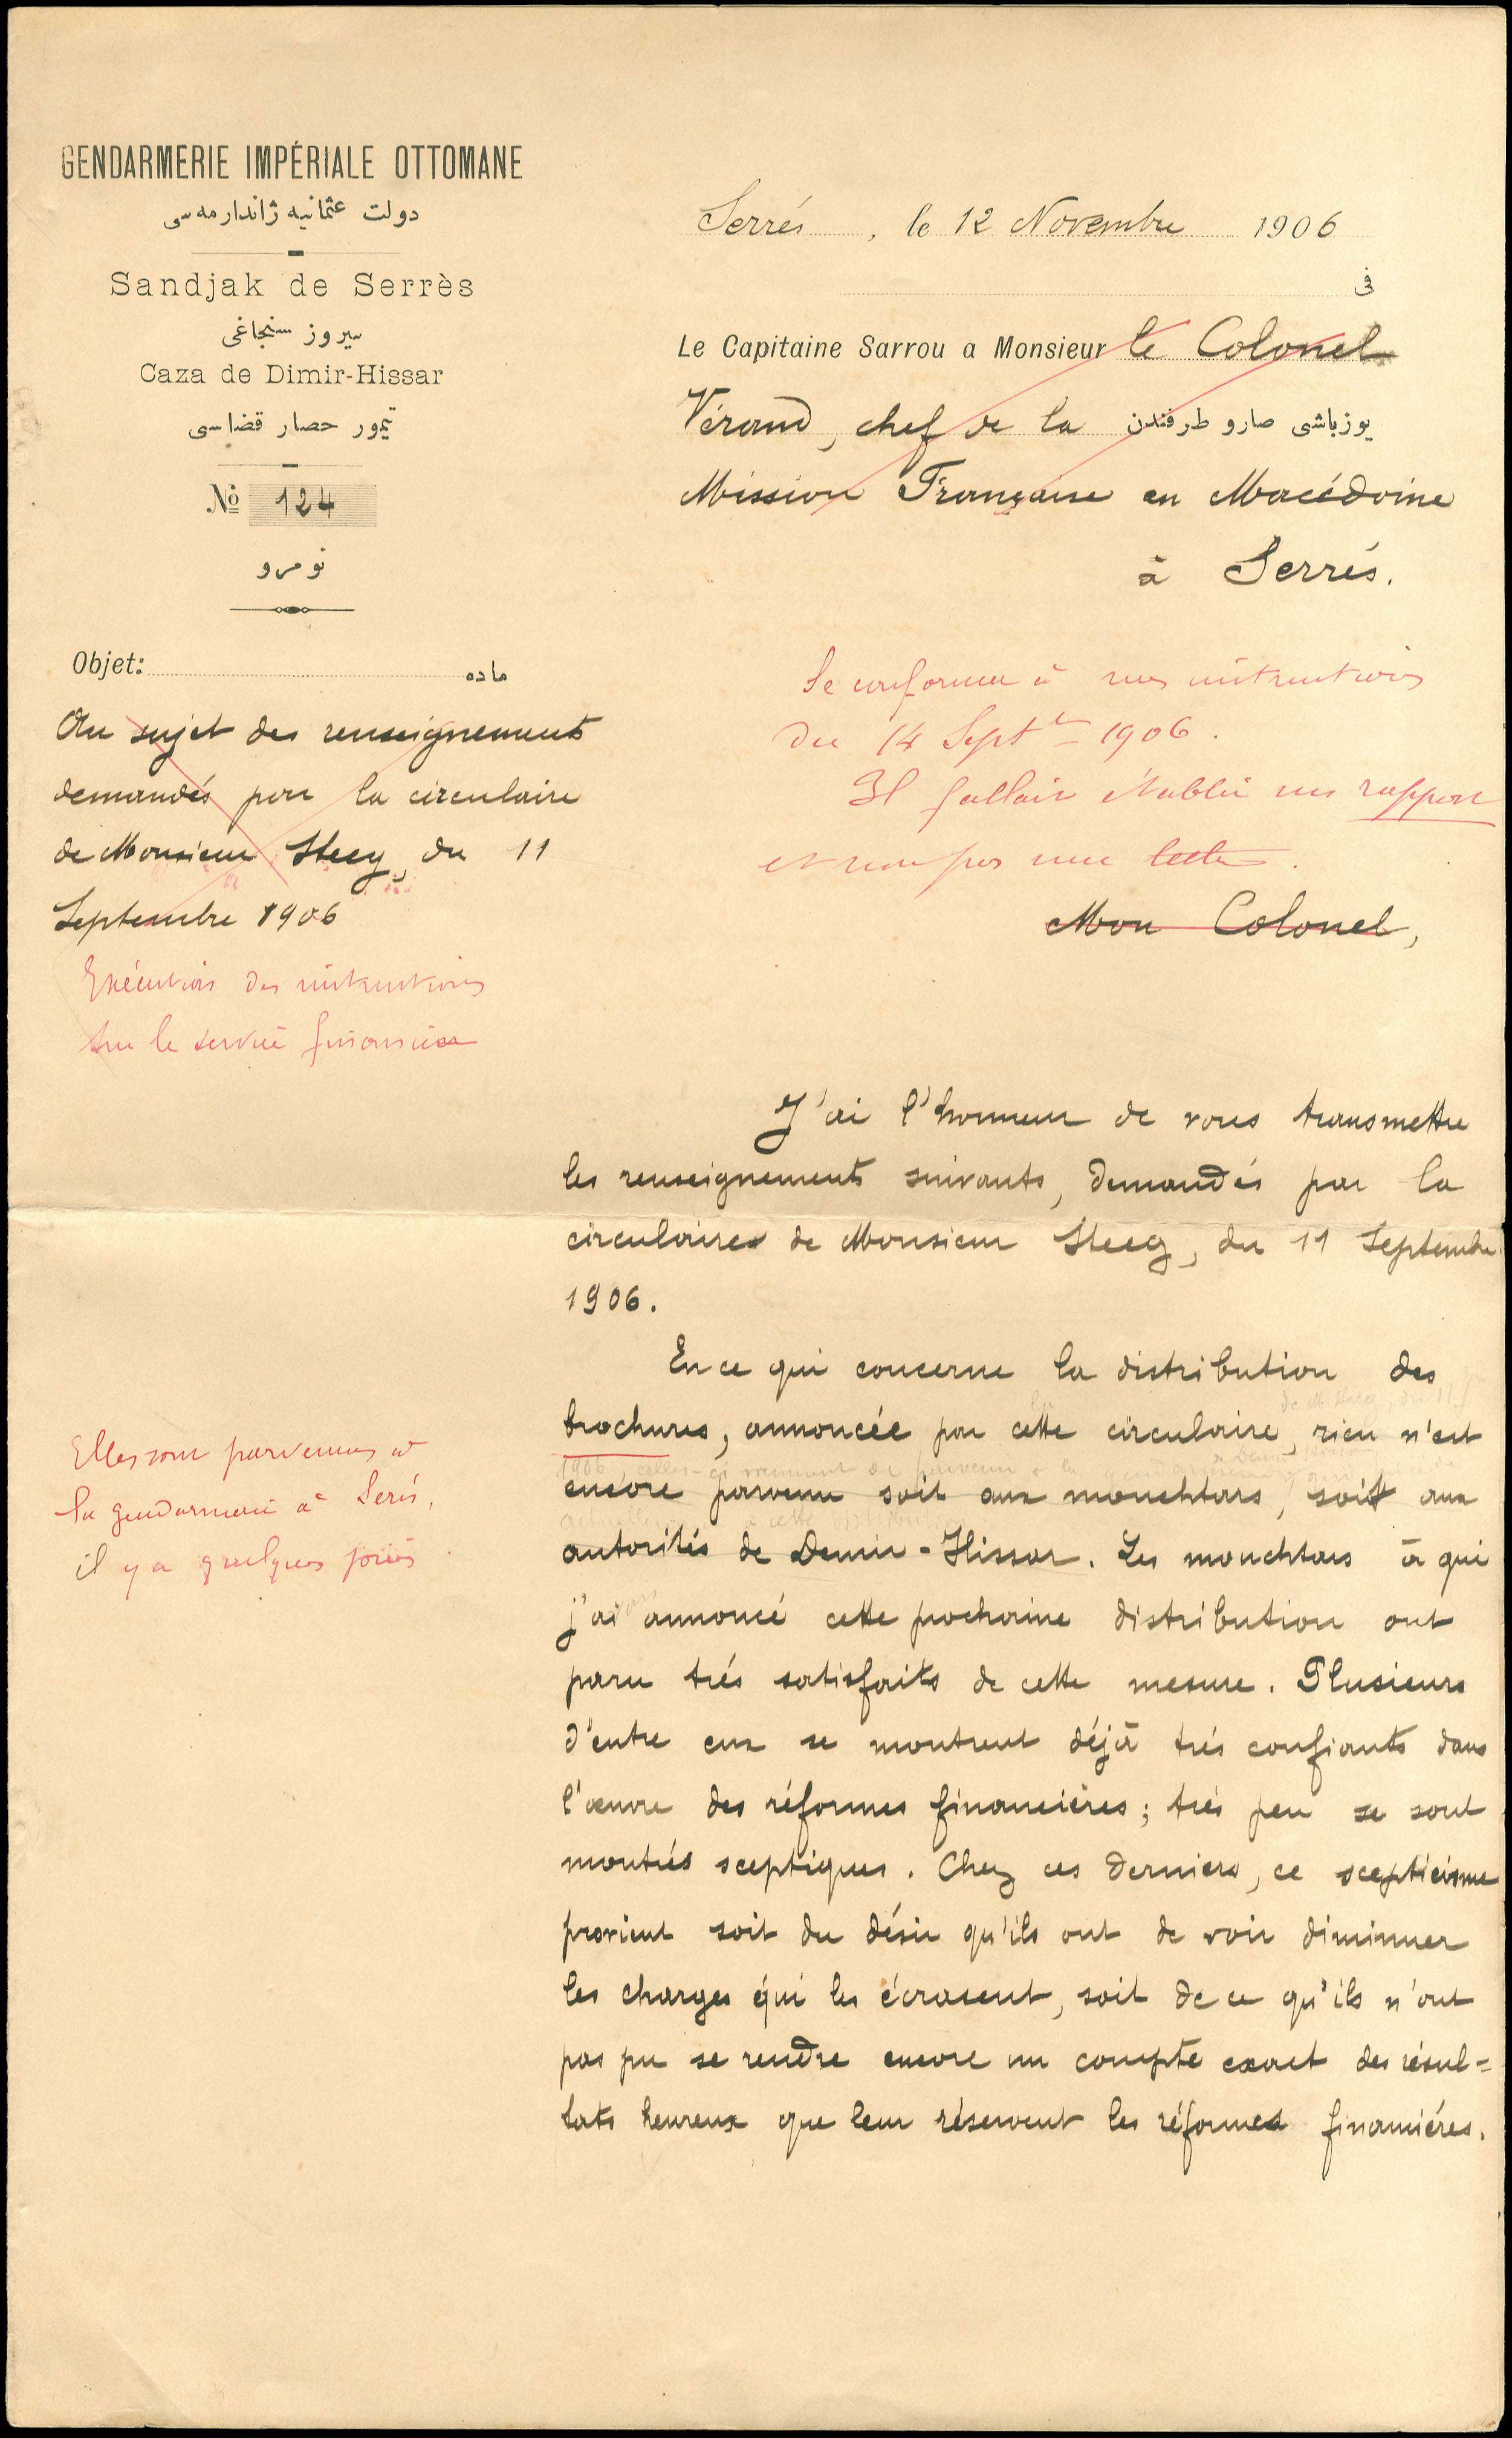 GENDARMERIE IMPÉRIALE OTTOMANE
دولت عثمانيه ژاندارمه سى
Sandjak de Serrès
سيروز سنجاغى
Caza de Dimir-Hissar
تيمور حصار قضاسى
Nº 124
نومرو
Objet: ماده
Au sujet des renseignements
demandés par la circulaire
de Monsieur Steeg, du 11
Septembre 1906
Exécution des instructions
sur le service financier
Serrés, le 12 Novembre 1906
فى
Le Capitaine Sarrou a Monsieur le Colonel
Vérand, chef de la يوزباشى صارو طرفندن
Mission Française en Macédoine
à Serrés.
Se conformer à mes instructions
du 14 Septbre 1906.
Il fallait établir un rapport
et non pas une lettre.
Mon Colonel,
J'ai l'honneur de vous transmettre
les renseignements suivants, demandés par la
circulaire de Monsieur Steeg, du 11 Septembre
1906.
En ce qui concerne la distribution des
brochures, annoncée par cette circulaire, rien n'est
de M. Steeg du 11
1906, celles-ci viennent de parvenir à la gendarmerie
encore parvenu soit aux mouchtars, soit aux
autorités de Demir-Hissar. Les mouchtars à qui
j'ai annoncé cette prochaine distribution ont
paru trés satisfaits de cette mesure. Plusieurs
d'entre eux se montrent déjà trés confiants dans
l'œuvre des réformes financiéres; trés peu se sont
montrés sceptiques. Chez ces derniers, ce scepticisme
provient soit du désir qu'ils ont de voir diminuer
les charges qui les écrasent, soit de ce qu'ils n'ont
pas pu se rendre encore un compte exact des résul=
tats heureux que leur réservent les réformes financiéres.
Elles sont parvenues à
la gendarmerie à Serés,
il y a quelques jours.